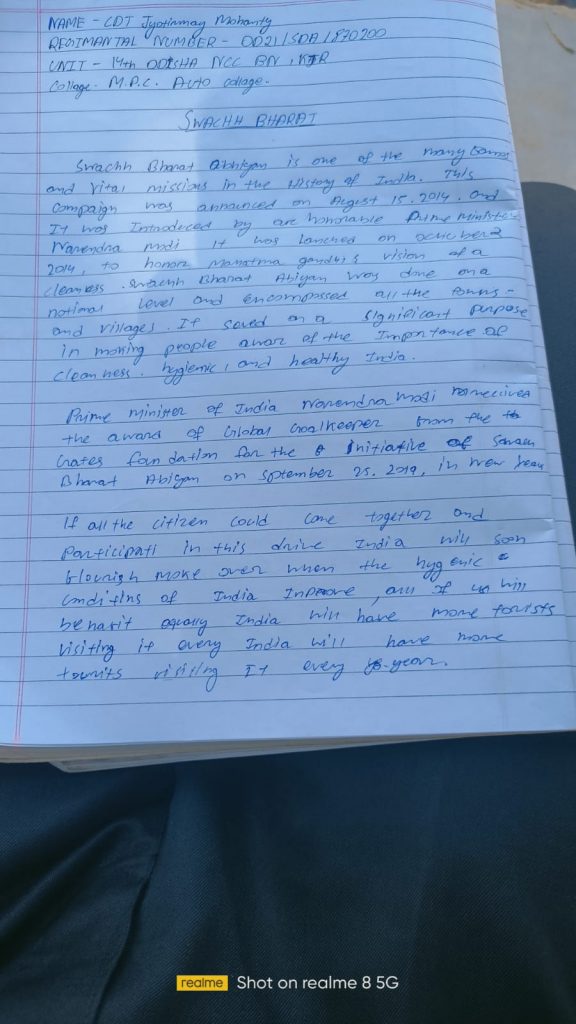 NAME - CDT Jyotirmay Mohanty
REGIMANTAL NUMBER - OD21/SDA/870200
UNIT - 14th ODISHA NCC BN, KJR
College- M.P.C. Auto collage.
SWACHH BHARAT
Swachh Bharat Abhigan is one of the many
and vital missions in the History of India. This
campaign was announced on August 15, 2014. and
It was Introduced by are honorable Prime Minister
Narendra modi It was lanched on 2
2014, to honor Mahatma gandhi's vision of a
cleanless. Swachh Bharat Abigan was done on a
notional level and encompassed all the towns -
and villages. It saved on a significant purpose
in making people awar of the Importance of
cleanness. hygienic, and healthy India.
Prime minister of India Narendra modi
the award of Global Goalkeeper from the
Gates foundation for the Initiative of
Bharat Abigan on September 25. 2019, in new
If all the citizen could come together and
participati in this drive India will soon
make over when the hygenic
conditins of India Improve, all of us will
benarit equaly India will have more torists
visiting it every India will have more
tourits visiting It every year.
realme Shot on realme 8 5G